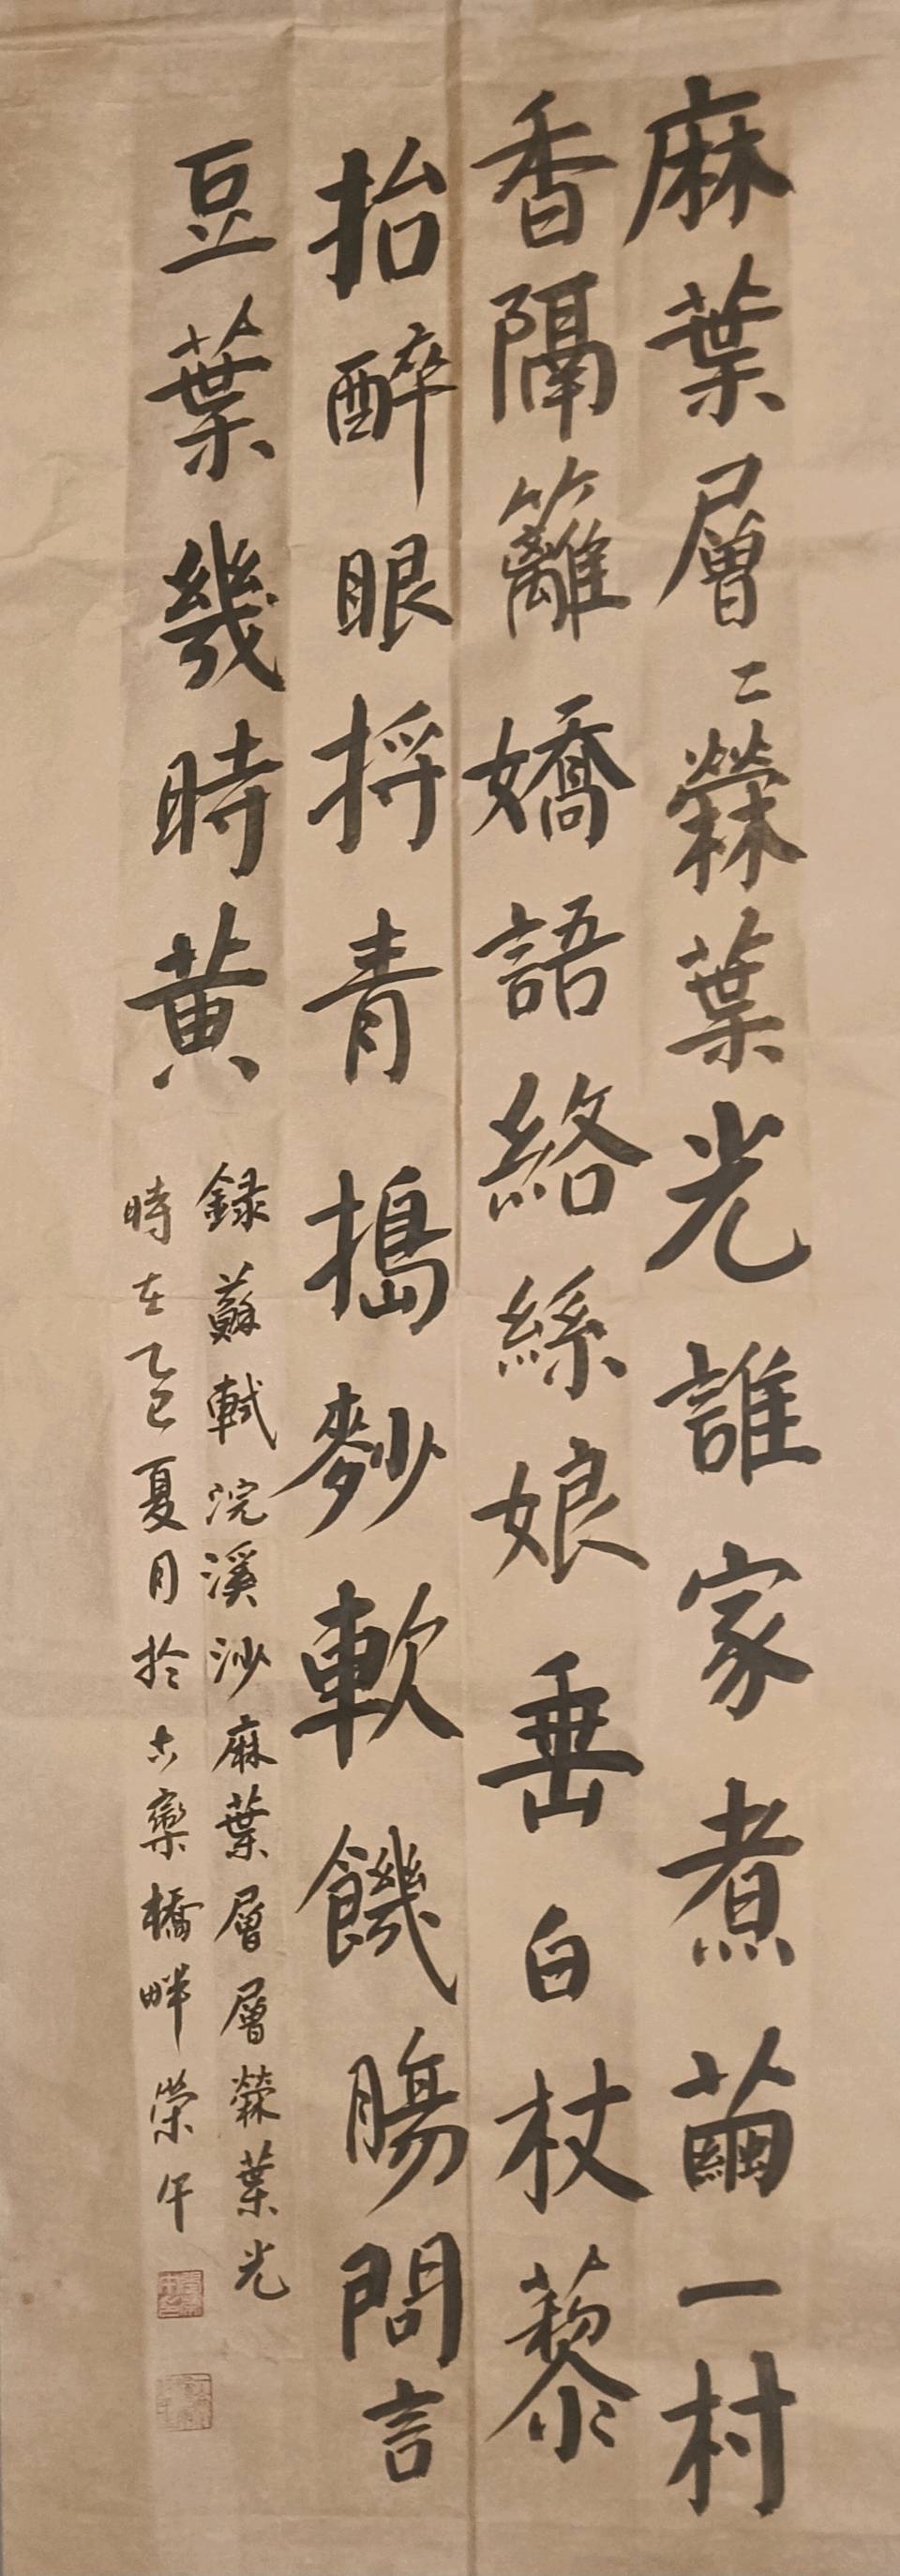 麻葉層〻檾葉光誰家煮繭一村
香隔籬嬌語絡絲娘垂白杖藜
抬醉眼捋青搗麨軟饑腸問言
豆葉幾時黄
録蘇軾浣溪沙麻葉層層檾葉光
時在乙巳夏月於古欒橋畔榮午